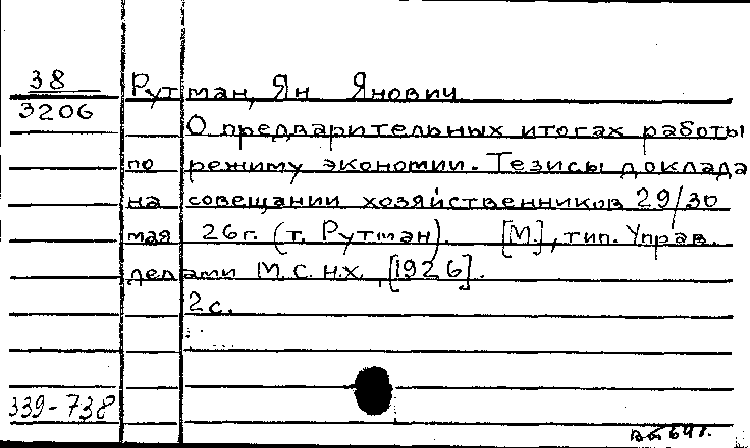 38
3206
Рутман, Ян Янович
О предварительных итогах работы
по режиму экономии. Тезисы доклада
на совещании хозяйственников 29/30
мая 26г. (т. Рутман). [М.], тип. Управ.
делами М.С.Н.Х., [1926].
2с.
339-738